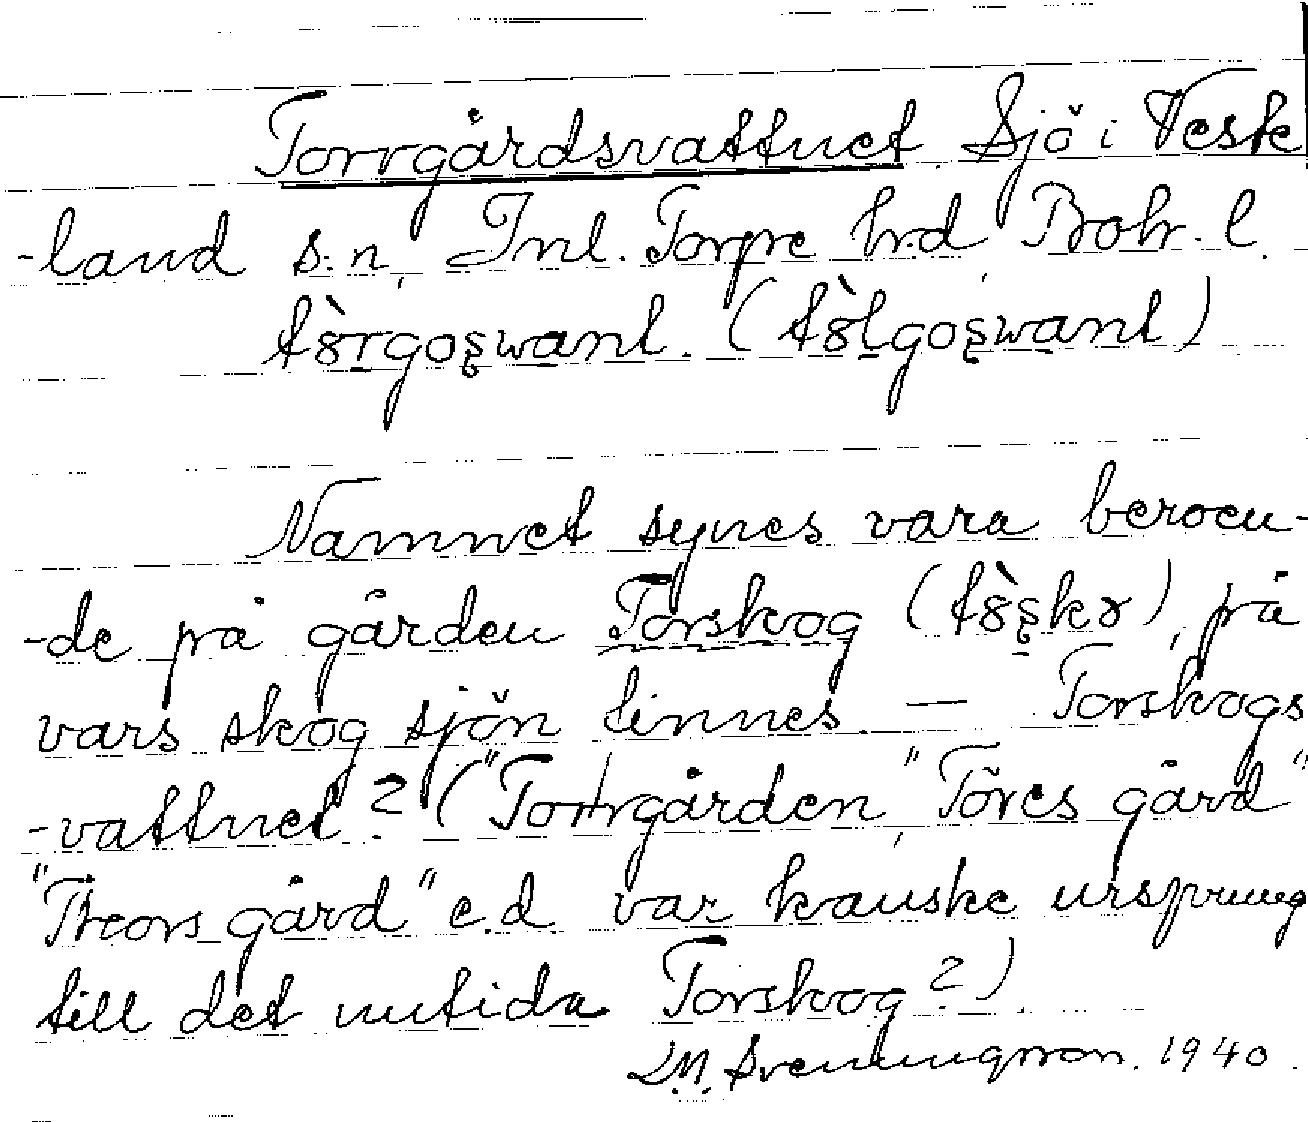 Torrgårdsvattnet Sjö i Veste
-land s:n, Inl. Torpe hrd, Boh. l.
tȣ̀rgoşwanl. (tȣ̀lgoşwanl)
Namnet synes vara beroen-
-de på gården Torskog (tȣ̀şkɤ), på
vars skog sjön finnes. — Torskogs
-vattnet? ("Torrgården", "Tores gård"
"Thors gård" e.d. var kanske ursprung
till det nutida Torskog?)
L.M. Svenungsson. 1940.